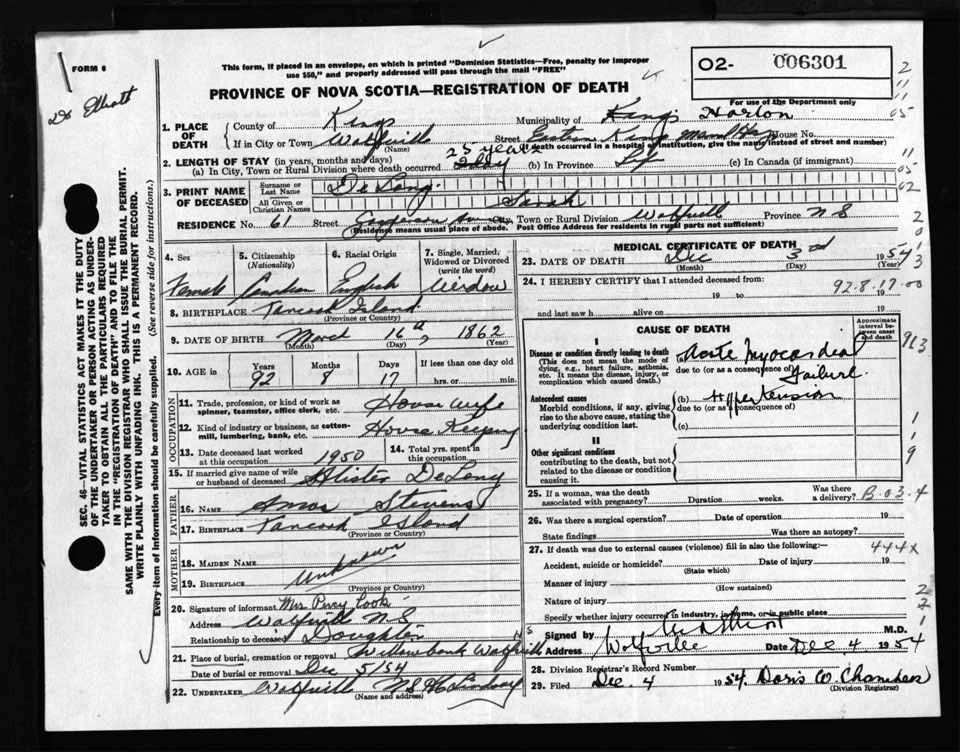 FORM 6
This form, if placed in an envelope, on which is printed "Dominion Statistics—Free, penalty for improper
use $50," and properly addressed will pass through the mail "FREE"
PROVINCE OF NOVA SCOTIA—REGISTRATION OF DEATH
O2- 006301
For use of the Department only
Dr Elliott
1. PLACE OF DEATH
County of Kings Municipality of Kings Horton
If in City or Town Wolfville Street Eastern Kings Meml Hosp House No.
(Name) (If death occurred in a hospital or institution, give the name instead of street and number)
2. LENGTH OF STAY (in years, months and days)
25 years
(a) In City, Town or Rural Division where death occurred 1 day (b) In Province Life (c) In Canada (if immigrant)
3. PRINT NAME OF DECEASED
Surname or Last Name De Long
All Given or Christian Names Sarah
RESIDENCE No. 61 Street Gaspereau Av City, Town or Rural Division Wolfville Province N S
(Residence means usual place of abode. Post Office Address for residents in rural parts not sufficient)
4. Sex
Female
5. Citizenship (Nationality)
Canadian
6. Racial Origin
English
7. Single, Married, Widowed or Divorced (write the word)
Widow
8. BIRTHPLACE Tancook Island
(Province or Country)
9. DATE OF BIRTH March 16th, 1862
(Month) (Day) (Year)
10. AGE in Years Months Days If less than one day old
92 8 17 hrs. or min.
OCCUPATION
11. Trade, profession, or kind of work as spinner, teamster, office clerk, etc. House Wife
12. Kind of industry or business, as cotton-mill, lumbering, bank, etc. House Keeping
13. Date deceased last worked at this occupation 1950
14. Total yrs. spent in this occupation
15. If married give name of wife or husband of deceased Alister DeLong
FATHER
16. NAME Amos Stevens
17. BIRTHPLACE Tancook Island
(Province or Country)
MOTHER
18. MAIDEN NAME
19. BIRTHPLACE Unknown
(Province or Country)
20. Signature of informant Mrs Percy Cook
Address Wolfville N.S
Relationship to deceased Daughter
21. Place of burial, cremation or removal Willowbank Wolfville N S
Date of burial or removal Dec 5/54
22. UNDERTAKER Wolfville N.S
(Name and address)
MEDICAL CERTIFICATE OF DEATH
23. DATE OF DEATH Dec 3rd 1954
(Month) (Day) (Year)
24. I HEREBY CERTIFY that I attended deceased from:
92.8.17.00
19 to 19
and last saw h alive on 19
CAUSE OF DEATH
Approximate interval between onset and death
I
Disease or condition directly leading to death (a) Acute Myocardial Failure
(This does not mean the mode of dying, e.g., heart failure, asthenia, etc. It means the disease, injury, or complication which caused death.)
due to (or as a consequence of)
Antecedent causes (b) Hypertension
Morbid conditions, if any, giving rise to the above cause, stating the underlying condition last.
due to (or as a consequence of)
(c)
II
Other significant conditions
contributing to the death, but not related to the disease or condition causing it.
25. If a woman, was the death associated with pregnancy? Duration weeks. Was there a delivery? B.03.4
26. Was there a surgical operation? Date of operation 19
State findings Was there an autopsy?
27. If death was due to external causes (violence) fill in also the following:— 444X
Accident, suicide or homicide? Date of injury 19
(State which)
Manner of injury
(How sustained)
Nature of injury
Specify whether injury occurred in industry, in home, or in public place
Signed by M.D.
Address Wolfville Date Dec 4 1954
28. Division Registrar's Record Number
29. Filed Dec. 4 1954. Doris W. Chambers
(Division Registrar)
SEC. 46—VITAL STATISTICS ACT MAKES IT THE DUTY
OF THE UNDERTAKER OR PERSON ACTING AS UNDER-
TAKER TO OBTAIN ALL THE PARTICULARS REQUIRED
IN THE "REGISTRATION OF DEATH" AND TO FILE THE
SAME WITH THE DIVISION REGISTRAR WHO SHALL ISSUE THE BURIAL PERMIT.
WRITE PLAINLY WITH UNFADING INK. THIS IS A PERMANENT RECORD.
Every item of information should be carefully supplied. (See reverse side for instructions.)
2
11
05
11
05
02
2
0
1
3
913
1
1
9
2
2
1